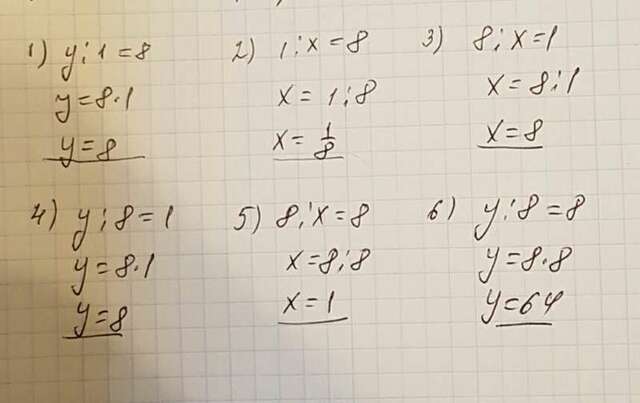 1) y:1=8
y=8·1
y=8
2) 1:x=8
x=1:8
x=1/8
3) 8:x=1
x=8:1
x=8
4) y:8=1
y=8·1
y=8
5) 8:x=8
x=8:8
x=1
6) y:8=8
y=8·8
y=64